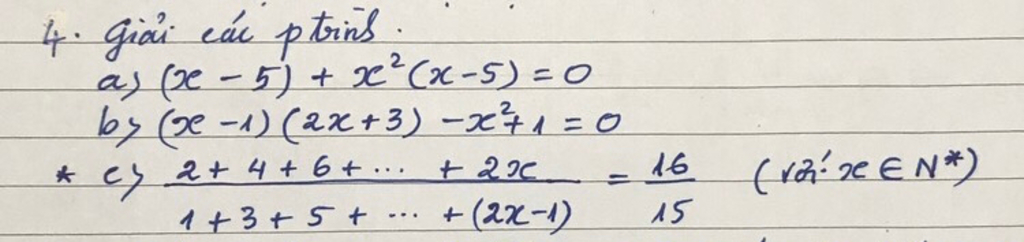 4. Giải các ptrình.
a) (x - 5) + x²(x - 5) = 0
b) (x - 1)(2x + 3) - x² + 1 = 0
* c) (2 + 4 + 6 + ... + 2x) / (1 + 3 + 5 + ... + (2x - 1)) = 16/15 (với x ∈ N*)